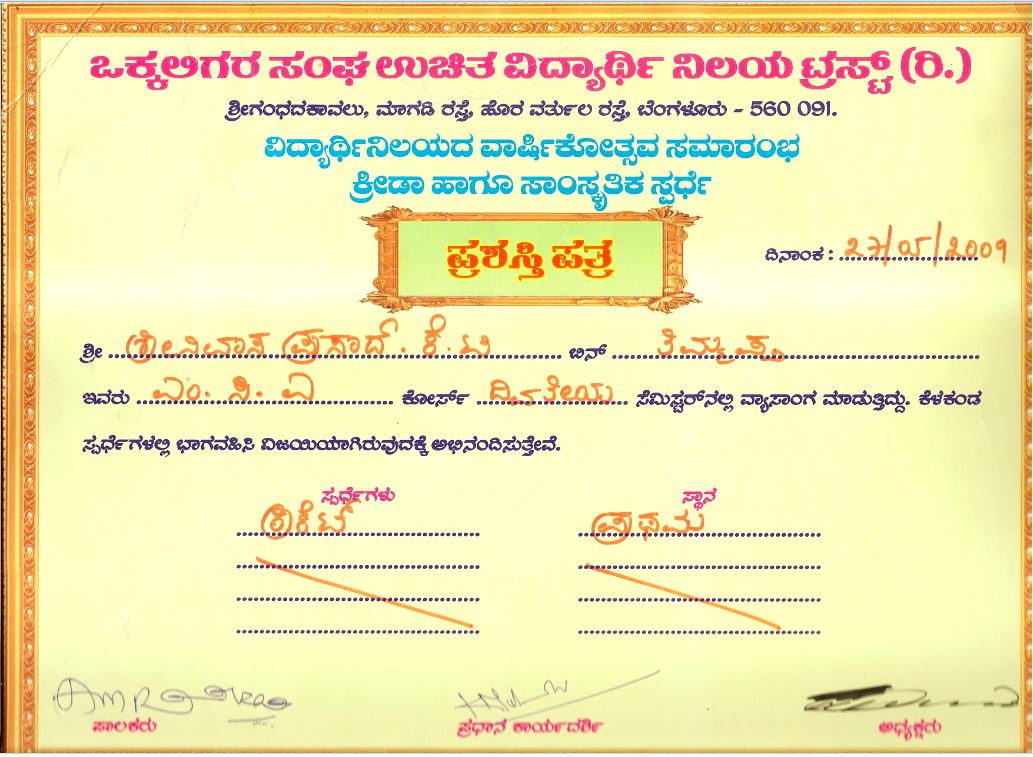 ಒಕ್ಕಲಿಗರ ಸಂಘ ಉಚಿತ ವಿದ್ಯಾರ್ಥಿ ನಿಲಯ ಟ್ರಸ್ಟ್ (ರಿ.)
ಶ್ರೀಗಂಧದಕಾವಲು, ಮಾಗಡಿ ರಸ್ತೆ, ಹೊರ ವರ್ತುಲ ರಸ್ತೆ, ಬೆಂಗಳೂರು - 560 091.
ವಿದ್ಯಾರ್ಥಿನಿಲಯದ ವಾರ್ಷಿಕೋತ್ಸವ ಸಮಾರಂಭ
ಕ್ರೀಡಾ ಹಾಗೂ ಸಾಂಸ್ಕೃತಿಕ ಸ್ಪರ್ಧೆ
ಪ್ರಶಸ್ತಿ ಪತ್ರ
ದಿನಾಂಕ : 27/05/2009
ಶ್ರೀ ಶ್ರೀನಿವಾಸ ಪ್ರಸಾದ್. ಕೆ. ಟಿ ಬಿನ್ ತಿಮ್ಮಪ್ಪ
ಇವರು ಎಂ. ಸಿ. ಎ ಕೋರ್ಸ್ ದ್ವಿತೀಯ ಸೆಮಿಸ್ಟರ್‌ನಲ್ಲಿ ವ್ಯಾಸಾಂಗ ಮಾಡುತ್ತಿದ್ದು. ಕೆಳಕಂಡ
ಸ್ಪರ್ಧೆಗಳಲ್ಲಿ ಭಾಗವಹಿಸಿ ವಿಜಯಿಯಾಗಿರುವುದಕ್ಕೆ ಅಭಿನಂದಿಸುತ್ತೇವೆ.
ಸ್ಪರ್ಧೆಗಳು ಸ್ಥಾನ
ಕ್ರಿಕೆಟ್ ಪ್ರಥಮ
ಪಾಲಕರು ಪ್ರಧಾನ ಕಾರ್ಯದರ್ಶಿ ಅಧ್ಯಕ್ಷರು